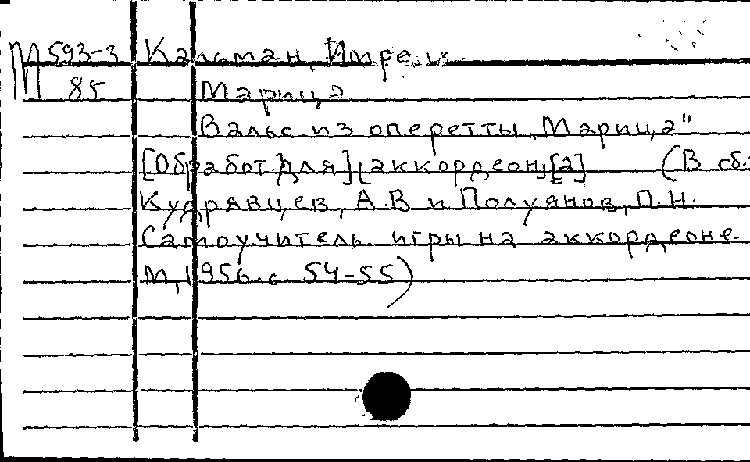 М 593-3 Кальман, Имре.
85 Марица
Вальс из оперетты „Марица"
[Обработ. для] аккордеон[а] (В сб.:
Кудрявцев, А.В и Полуянов, П.Н.
Самоучитель игры на аккордеоне.
М, 1956. с 54-55)